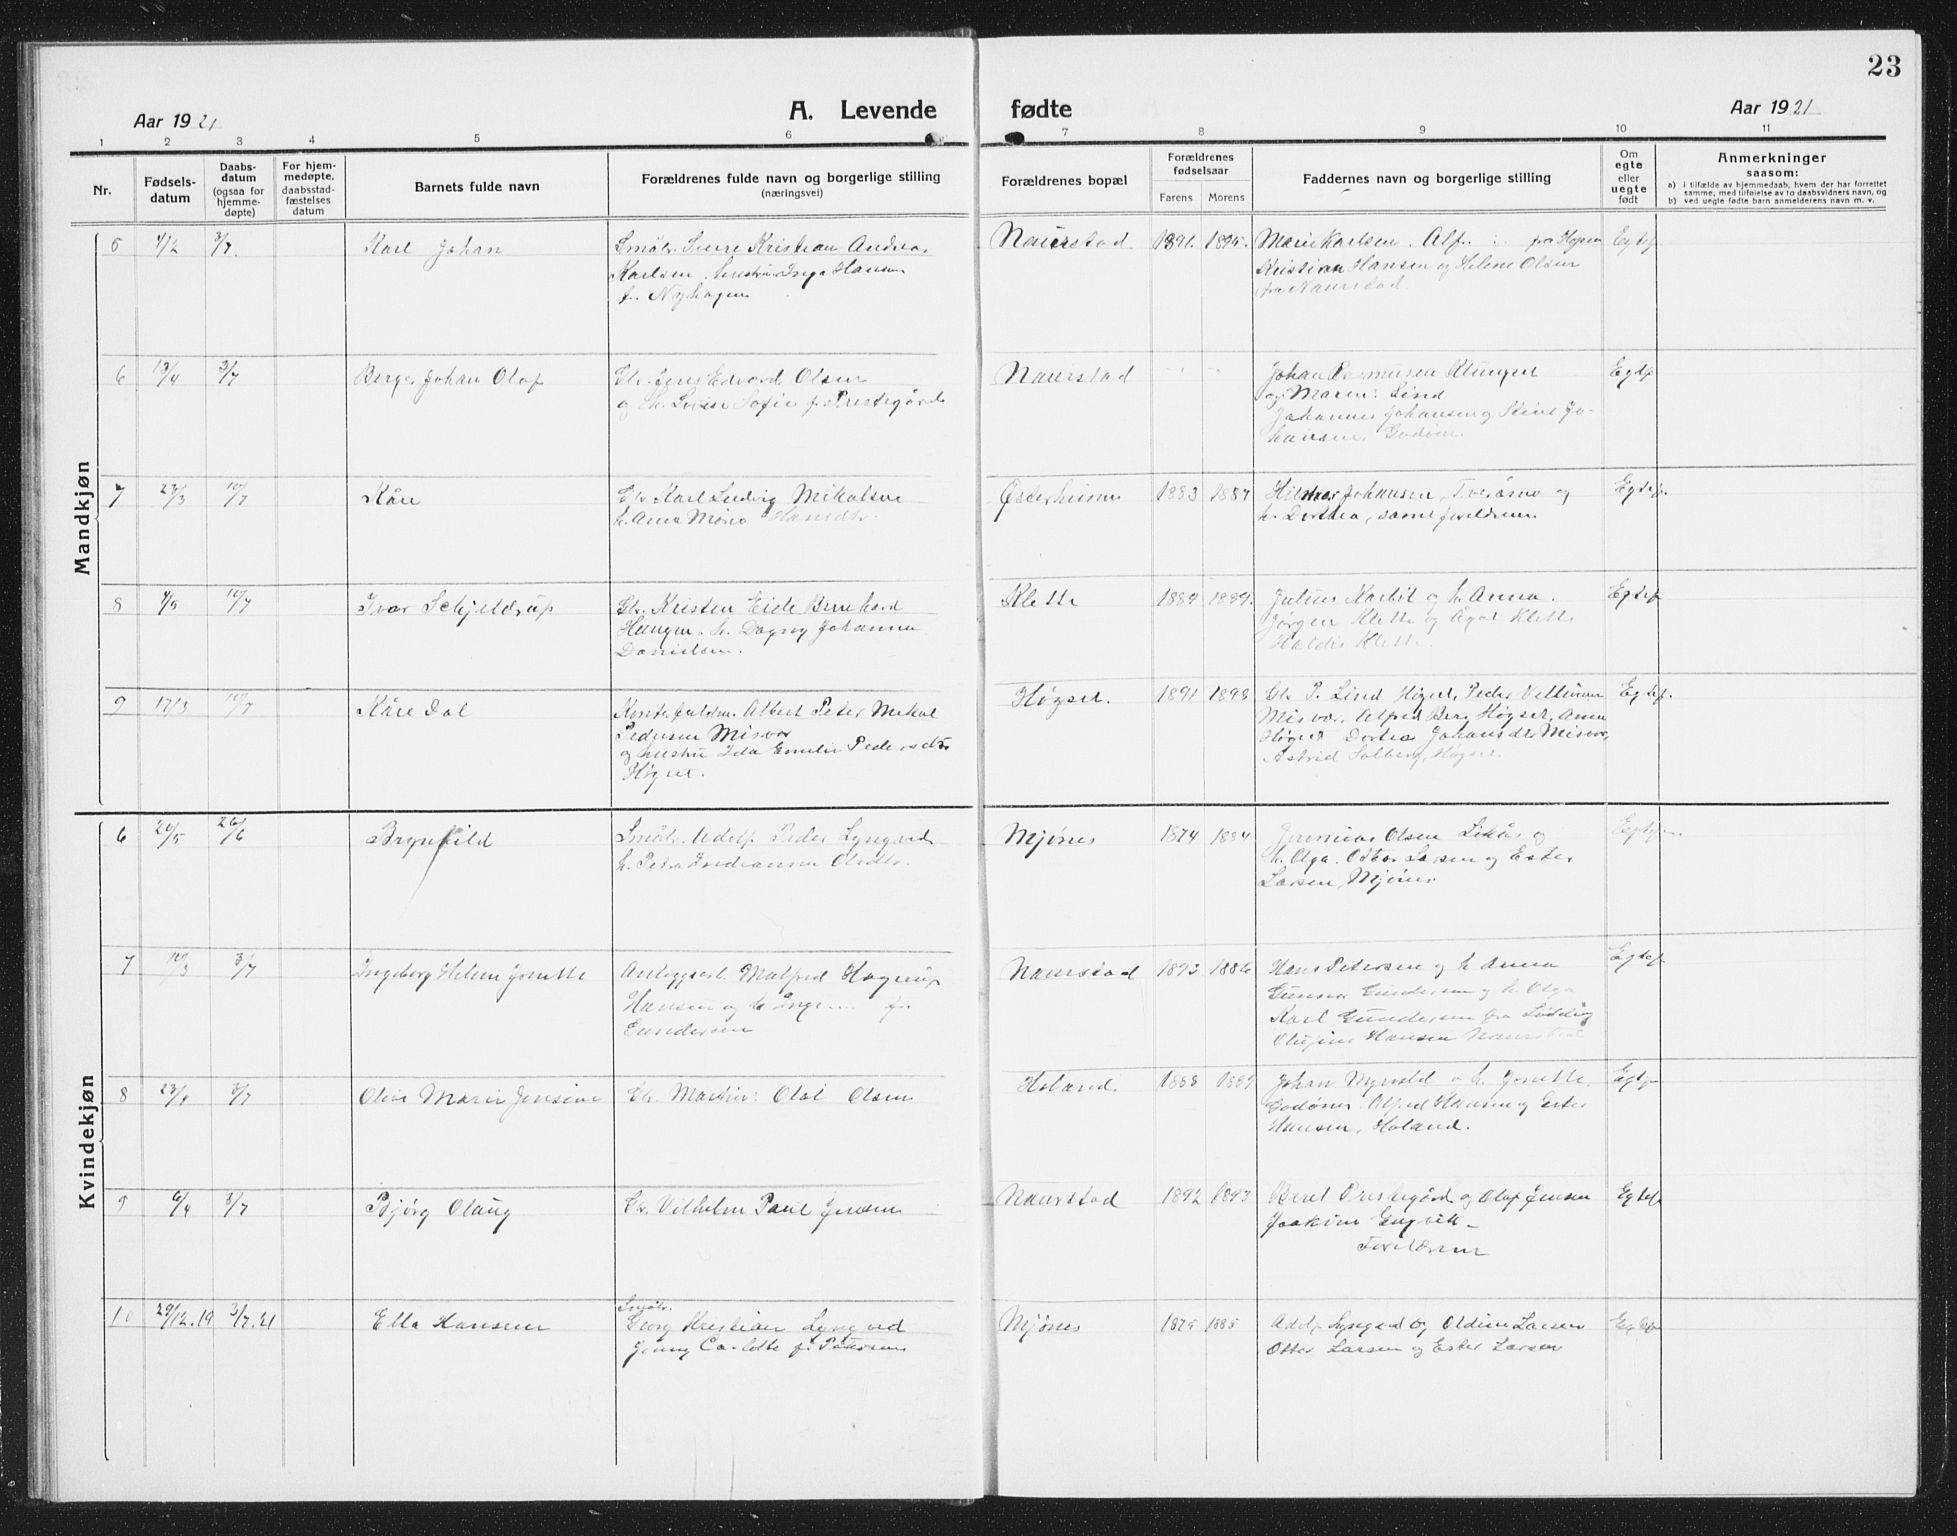 23
Aar 1921
A. Levende
fødte
Aar 1921
1 2 3 4 5 6 7 8 9 10 11
Nr.
Fødsels-
datum
Daabs-
datum
(ogsaa for
hjemme-
døpte)
For hjem-
medøpte,
daabsstad-
fæstelses
datum
Barnets fulde navn
Forældrenes fulde navn og borgerlige stilling
(næringsvei)
Forældrenes bopæl
Forældrenes
fødselsaar
Farens Morens
Faddernes navn og borgerlige stilling
Om
egte
eller
uegte
født
Anmerkninger
saasom:
a) i tilfælde av hjemmedaab, hvem der har forrettet
samme, med tilføielse av to daabsvidners navn, og
b) ved uegte fødte barn anmelderens navn m. v.
Mandkjøn
5 4/2 3/7. Karl Johan
Småbr. Sverre Kristian Andrea
Karlsen. hustru Inga Hansen
f. Nyhagen
Naurstad 1891. 1895.
Marie Karlsen. Alf. fra Hopen
Kristian Hansen og Helene Olsen
fra Naurstad.
Egtef
6 13/4 3/7 Berger Johan Olaf
Gbr. Jens Edvard Olsen
og h. Lovise Sofie f. Prestegård
Naurstad " "
Johan Rasmusen Klunget
og Maren Lind
Johannes Johansen og Stine Jo-
hansen, Godøen.
Egtf
7 23/3 10/7 Kåre
Gbr Karl Ludvig Mikalsen
h. Anna Maria Hansdtr.
Østerhusmo 1883 1887
Hilmar Johansen, Tveråmo og
h. Dorthea, samt foreldrene
Egtef.
8 4/5 10/7 Ivar Schjeldrup
Gbr. Kristen Eide Bernhard
Haugen h. Dagny Johanna
Danielsen.
Klette 1889 1889.
Julius Karbøl og h. Anna.
Jørgen Klette og Ågot Klette
Haldis Klette.
Egtef
9 17/3 10/7 Kåre Dal
Albert Peter Mikal
Pedersen Misvær
og hustru Ida Emilie Pedersdtr
Høgset.
Høgset. 1891 1898
Gbr P. Lind Høgset, Peder
Misvær. Alfred Berg Høgset, Anna
Høgset Dortea Johansdtr Misvær,
Astrid Solberg, Høgset.
Egtef.
Kvindekjøn
6 26/5 26/6 Brynhild
Småbr. Adolf Peder Lyngved
h. Petra Fredrianna Olsdtr.
Mjønes 1874 1884
Jeremias Olsen Likås og
h. Olga. Otter Larsen og Ester
Larsen, Mjønes.
7 10/3 3/7 Ingeborg Helene Jonette
Anlæggsarb. Malfred Hagerup
Hansen og h. Inga f.
Gundersen
Naurstad 1893 1886
Hans Petersen og h Anna
Gunnar Gundersen og h. Olga
Karl Gundersen fra Løding
Olufine Hansen Naurstad
Egtef
8 23/4 3/7 Oline Marie Jensine
Gbr. Martin Olai Olsen
Holand. 1888 1889
Johan Myrvold og h. Jonette
Godønes. Alfred Hansen og Ester
Hansen, Holand.
Egtf
9 6/4 3/7 Bjørg Olaug
Gbr. Vilhelm Paul Jensen
Naurstad 1892 1893
Beret Prestegård og Olaf Jensen
Joakim Engvik -
Foreldrene
Egtef
10 29/12.19 3/7.21 Ella Hansine
Småbr.
Georg Kristian Lyngved
Jenny Carlotte f. Petersen
Mjønes 1875 1885
Adolf Lyngved og Oldine Larsen
Otter Larsen og Ester Larsen
Egtef